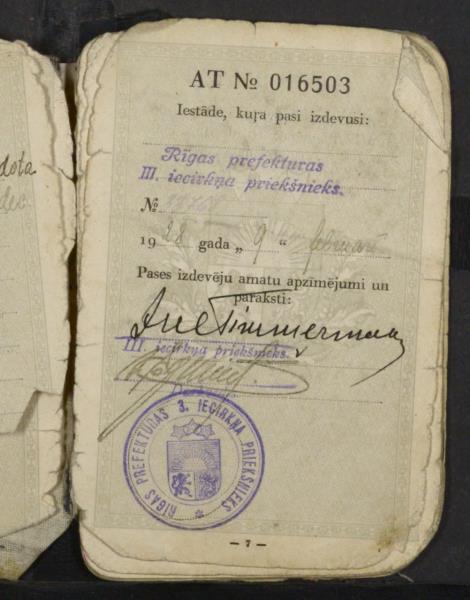 dota
AT № 016503
Iestāde, kuŗa pasi izdevusi:
Rīgas prefektūras
III. iecirkņa priekšnieks.
№
1928 gada „ 9 “ februarī
Pases izdevēju amatu apzīmējumi un
paraksti:
Timmerman
III. iecirkņa priekšnieks.
RĪGAS PREFEKTŪRAS 3. IECIRKŅA PRIEKŠNIEKS
— 7 —